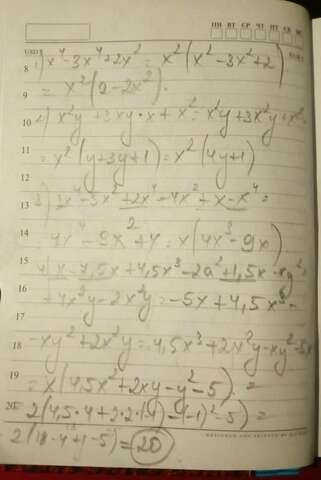 ПН ВТ СР ЧТ ПТ СБ ВС
8 1) x⁴-3x⁴+2x² = x²(x²-3x²+2)
9 = x²(2-2x²).
10 2) x²y+3xy·x+x² = x²y+3x²y+x² =
11 = x²(y+3y+1) = x²(4y+1)
12
13 3) 3x⁴-5x²+2x⁴-4x²+x-x⁴ =
14 = 4x⁴-9x²+x = x(4x³-9x)
15 4) x-7,5x+4,5x³-2a²+1,5x-xy²+
16 +4x³y-2x²y = -5x+4,5x³-
17
18 -xy²+2x²y = 4,5x³+2x²y-xy²-5x
19 = x(4,5x²+2xy-y²-5) =
20 2(4,5·4+2·2(-1)-(-1)²-5) =
2(18-4-1-5) = 20